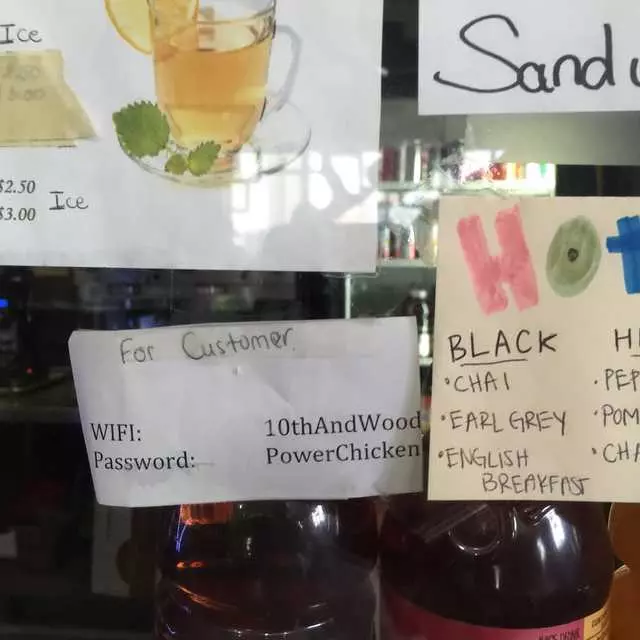 Ice
$2.50
$3.00 Ice
Sand
HOT
For Customer.
WIFI: 10thAndWood
Password: PowerChicken
BLACK
• CHAI
• EARL GREY
• ENGLISH
BREAKFAST
H
• PEP
• POM
• CHA